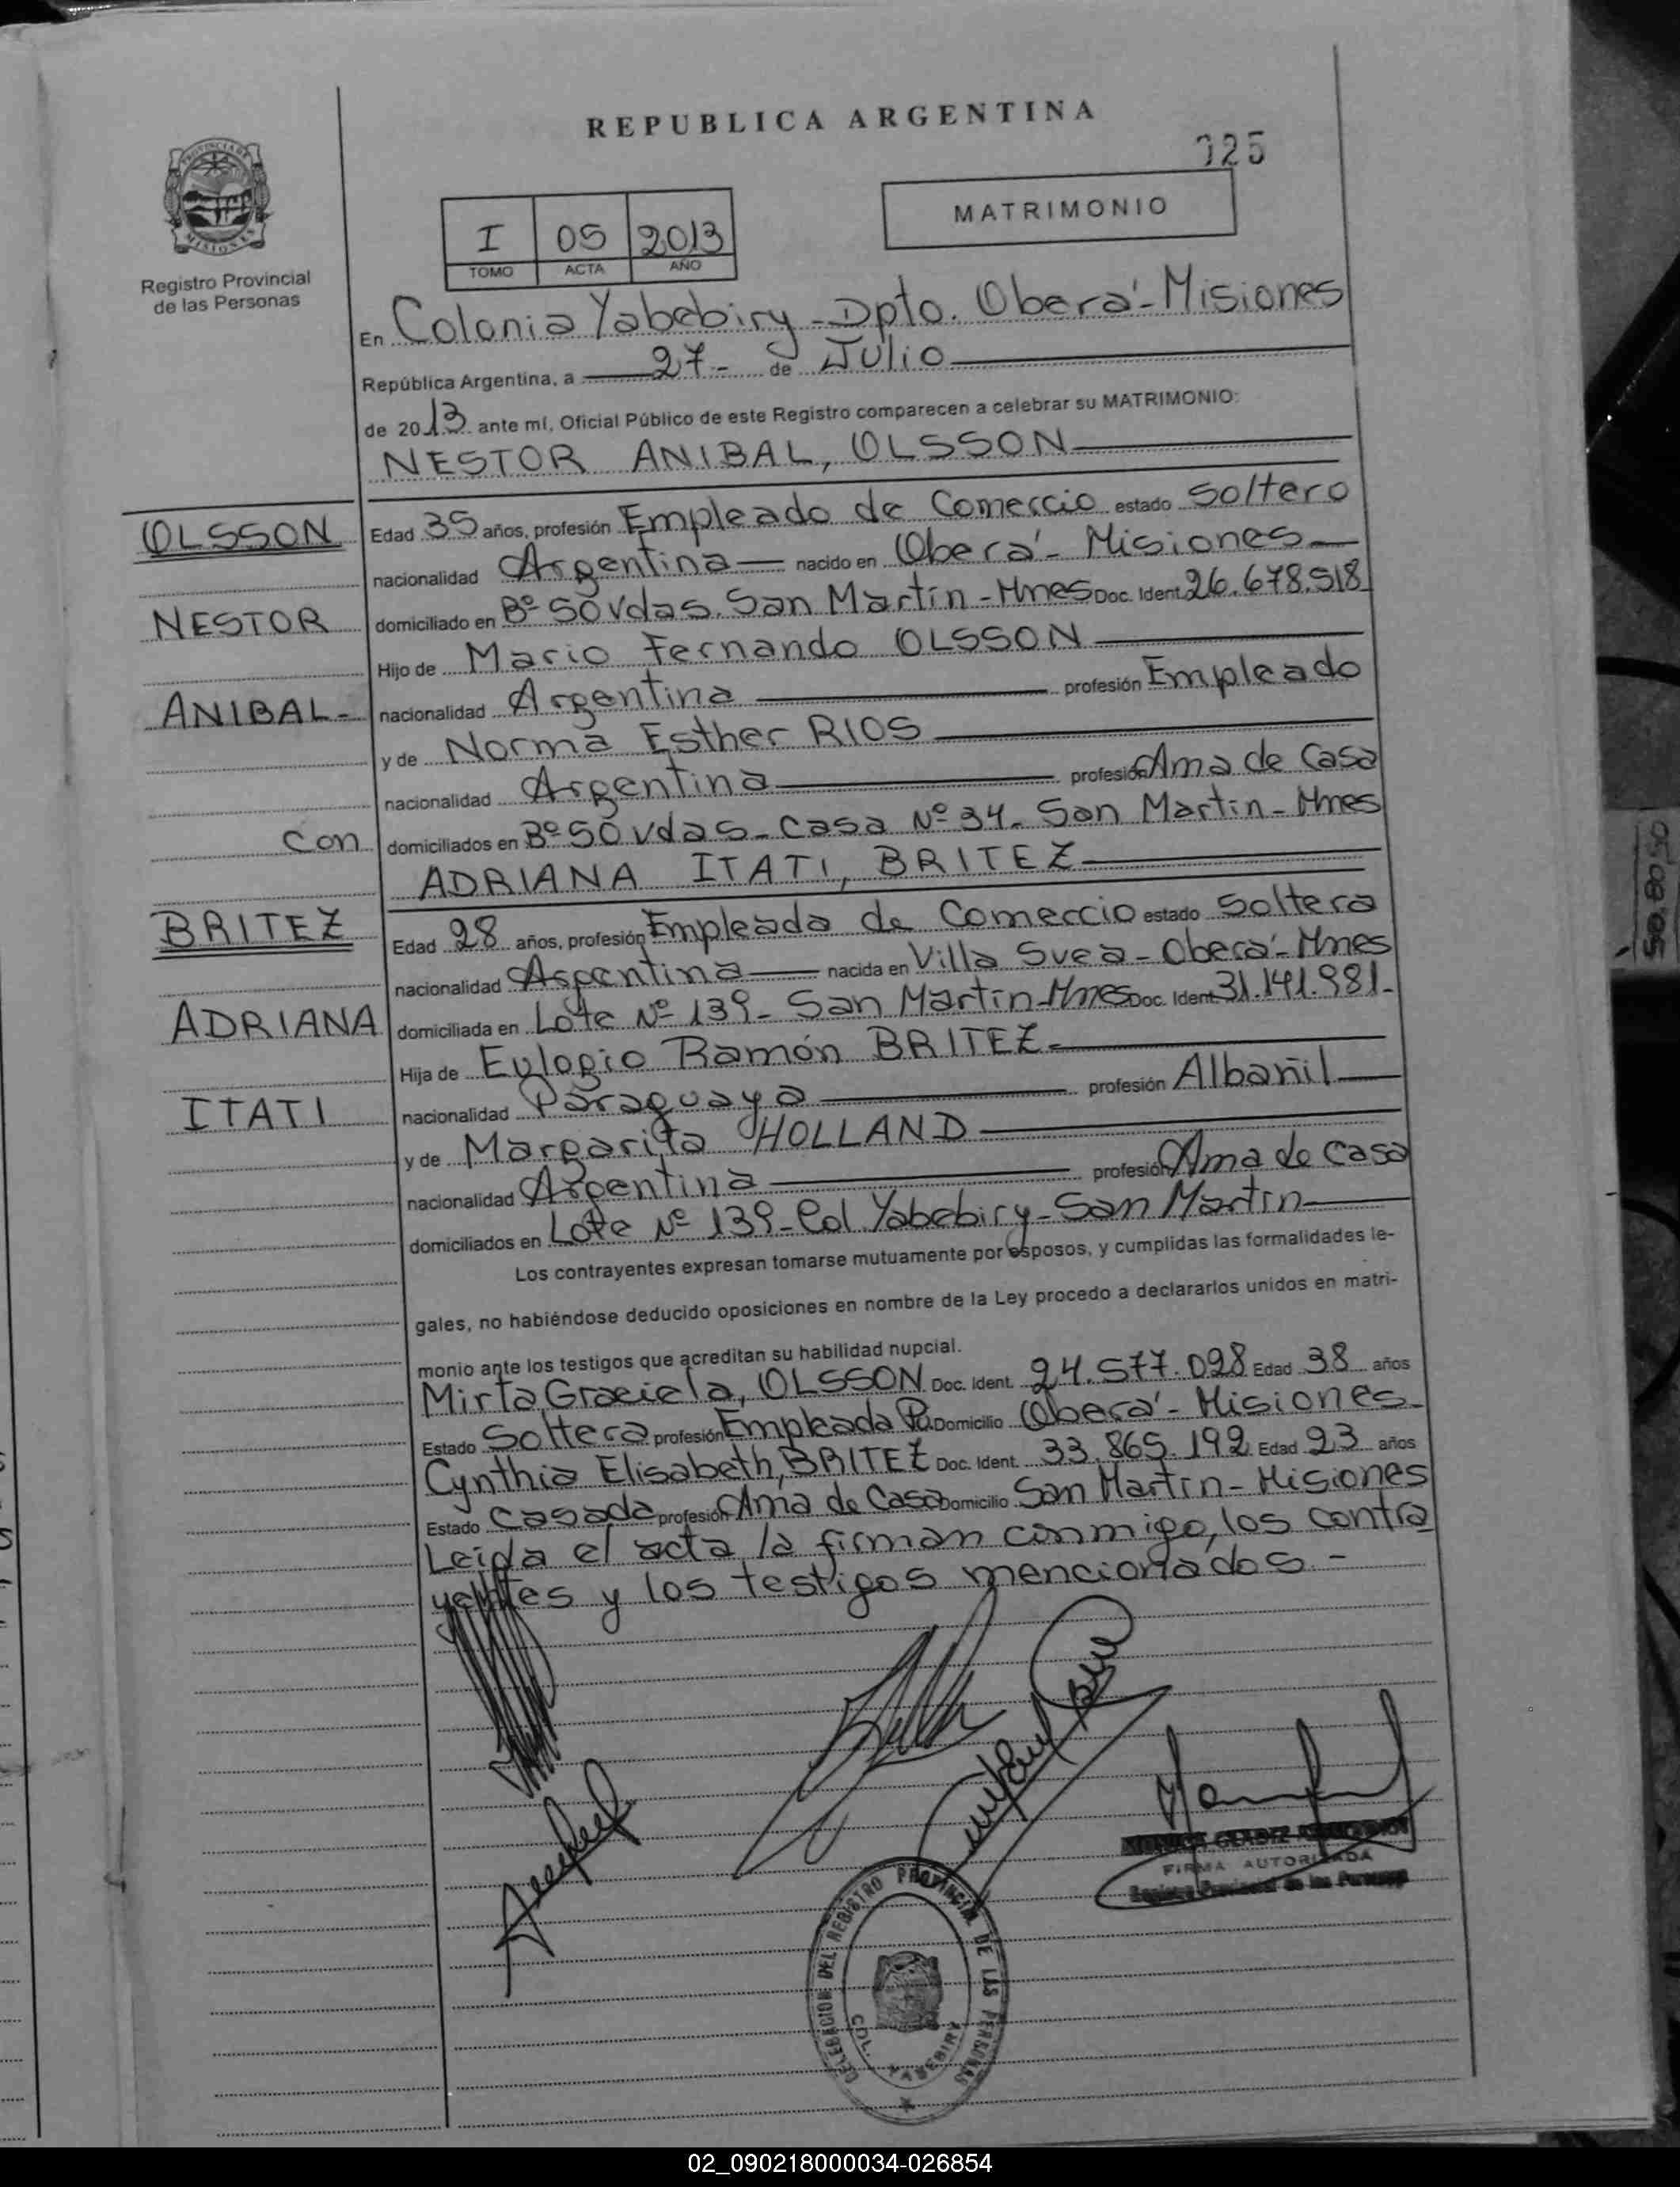 REPUBLICA ARGENTINA
025
PROVINCIA DE MISIONES
Registro Provincial
de las Personas
I 05 2013
TOMO ACTA AÑO
MATRIMONIO
En Colonia Yabebiry - Dpto. Oberá - Misiones
República Argentina, a 27- de Julio
de 2013 ante mí, Oficial Público de este Registro comparecen a celebrar su MATRIMONIO:
NESTOR ANIBAL, OLSSON
OLSSON Edad 35 años, profesión Empleado de Comercio estado Soltero
nacionalidad Argentina nacido en Oberá - Misiones
NESTOR domiciliado en Bº 50 Vdas. San Martín - Mnes Doc. Ident. 26.678.518
Hijo de Mario Fernando OLSSON
ANIBAL- nacionalidad Argentina profesión Empleado
y de Norma Esther RIOS
nacionalidad Argentina profesión Ama de Casa
Con domiciliados en Bº 50 Vdas - Casa Nº 34 - San Martín - Mnes
ADRIANA ITATI, BRITEZ
BRITEZ Edad 28 años, profesión Empleada de Comercio estado Soltera
nacionalidad Argentina nacida en Villa Svea - Oberá - Mnes
ADRIANA domiciliada en Lote Nº 139 - San Martín - Mnes Doc. Ident. 31.141.981-
Hija de Eulogio Ramón BRITEZ-
ITATI nacionalidad Paraguaya profesión Albañil
y de Margarita HOLLAND
nacionalidad Argentina profesión Ama de Casa
domiciliados en Lote Nº 139 - Col. Yabebiry - San Martín
Los contrayentes expresan tomarse mutuamente por esposos, y cumplidas las formalidades le-
gales, no habiéndose deducido oposiciones en nombre de la Ley procedo a declararlos unidos en matri-
monio ante los testigos que acreditan su habilidad nupcial.
Mirta Graciela, OLSSON Doc. Ident. 24.577.028 Edad 38 años
Estado Soltera profesión Empleada Pú. Domicilio Oberá - Misiones-
Cynthia Elisabeth, BRITEZ Doc. Ident. 33.865.192 Edad 23 años
Estado Casada profesión Ama de Casa Domicilio San Martín - Misiones
Leida el acta la firman conmigo, los contra
yentes y los testigos mencionados -
FIRMA AUTORIZADA
Registro Provincial de las Personas
DELEGACION DEL REGISTRO PROVINCIAL DE LAS PERSONAS
COL. YABEBIRY
02_090218000034-026854